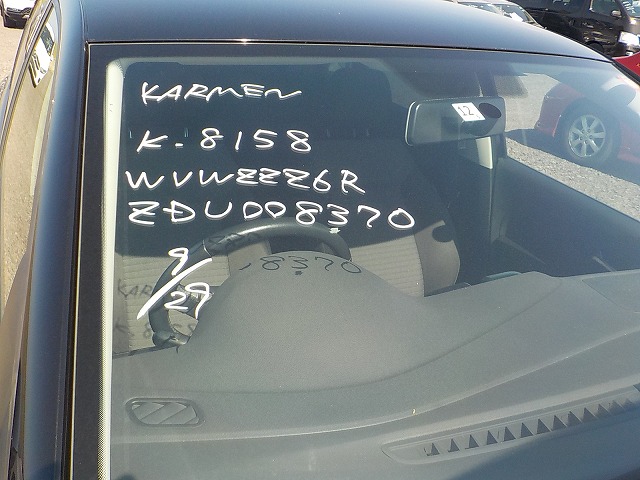 KARMEN
K-8158
WVWZZZ6R
ZDU008370
9/29
12